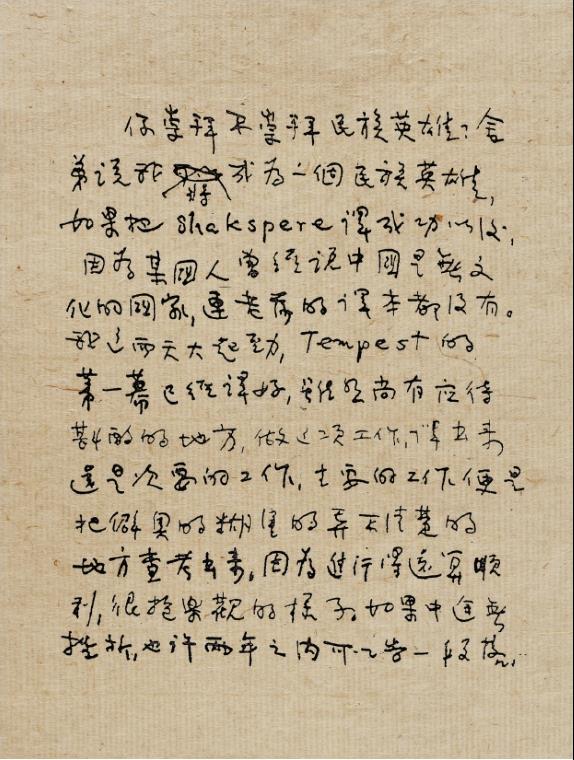 你崇拜不崇拜民族英雄？舍
弟说我将成为一個民族英雄，
如果把Shakspere譯成功以後，
因為某國人曾經説中國是無文
化的國家，連老莎的譯本都没有。
我这両天大起勁，Tempest的
第一幕已經譯好，雖然尚有应待
斟酌的地方，做这项工作，譯出来
還是次要的工作，主要的工作便是
把僻奥的糊塗的弄不清楚的
地方查考出来。因為進行得還算順
利，很抱樂觀的樣子。如果中途無
挫折，也许両年之内可以告一段落。